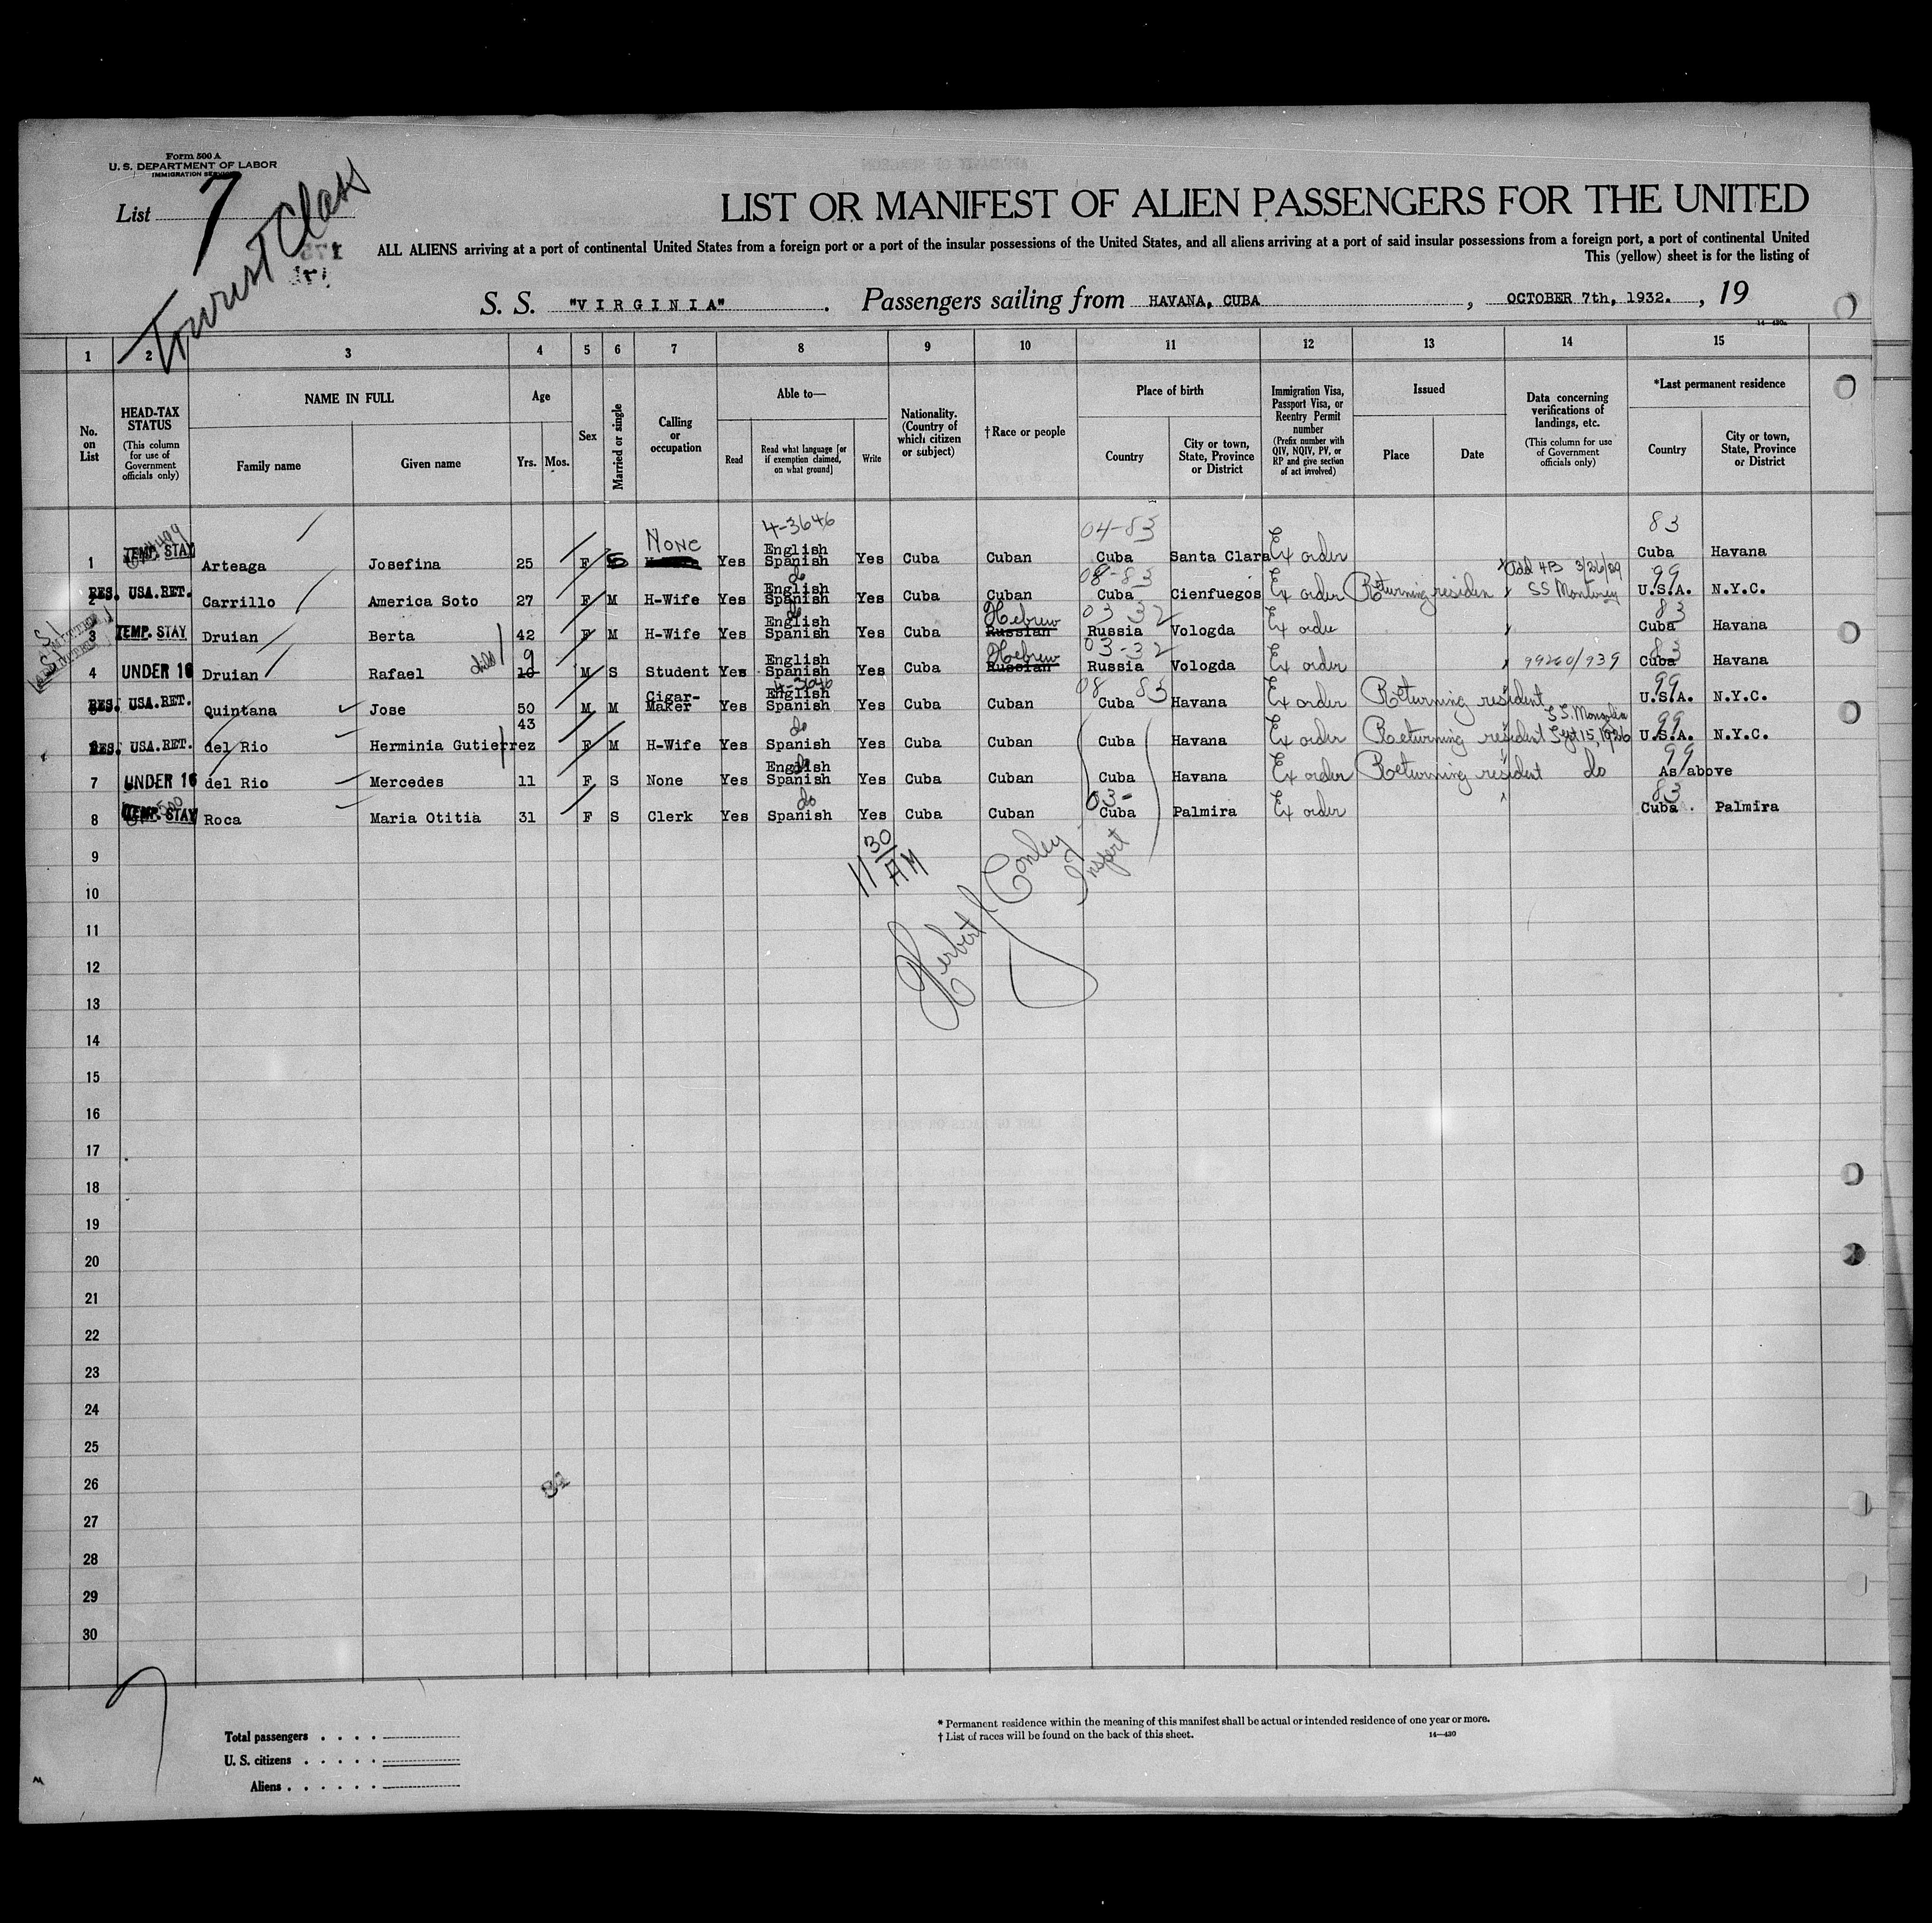 Form 500 A
U. S. DEPARTMENT OF LABOR
IMMIGRATION SERVICE
List 7
Tourist Class
LIST OR MANIFEST OF ALIEN PASSENGERS FOR THE UNITED
ALL ALIENS arriving at a port of continental United States from a foreign port or a port of the insular possessions of the United States, and all aliens arriving at a port of said insular possessions from a foreign port, a port of continental United
This (yellow) sheet is for the listing of
S. S. "VIRGINIA" . Passengers sailing from HAVANA, CUBA , OCTOBER 7th, 1932. , 19
1 2 3 4 5 6 7 8 9 10 11 12 13 14 15
No. on List
HEAD-TAX STATUS
(This column for use of Government officials only)
NAME IN FULL
Family name
Given name
Age
Yrs. Mos.
Sex
Married or single
Calling or occupation
Able to—
Read
Read what language [or if exemption claimed, on what ground]
Write
Nationality. (Country of which citizen or subject)
†Race or people
Place of birth
Country
City or town, State, Province or District
Immigration Visa, Passport Visa, or Reentry Permit number
(Prefix number with QIV, NQIV, PV, or RP and give section of act involved)
Issued
Place
Date
Data concerning verifications of landings, etc.
(This column for use of Government officials only)
*Last permanent residence
Country
City or town, State, Province or District
4-3646 04-83 83
1 TEMP. STAY Arteaga Josefina 25 F S None Yes English Spanish Yes Cuba Cuban Cuba Santa Clara Ex order Cuba Havana
do 08-83 3/26/29 99
2 RES. USA. RET. Carrillo America Soto 27 F M H-Wife Yes English Spanish Yes Cuba Cuban Cuba Cienfuegos Ex order Returning residen SS Monterey U.S.A. N.Y.C.
do Hebrew 03 32 83
3 TEMP. STAY Druian Berta 42 F M H-Wife Yes English Spanish Yes Cuba Russian Russia Vologda Ex order Cuba Havana
child 9 Hebrew 03-32 83
4 UNDER 16 Druian Rafael 10 M S Student Yes English Spanish Yes Cuba Russian Russia Vologda Ex order 99260/939 Cuba Havana
4-3646 08 83 99
5 RES. USA. RET. Quintana Jose 50 M M Cigar-Maker Yes English Spanish Yes Cuba Cuban Cuba Havana Ex order Returning resident U.S.A. N.Y.C.
do S.S. Mongolia 99
6 RES. USA. RET. del Rio Herminia Gutierrez 43 F M H-Wife Yes Spanish Yes Cuba Cuban Cuba Havana Ex order Returning resident Sept 15, 1926 U.S.A. N.Y.C.
do 99
7 UNDER 16 del Rio Mercedes 11 F S None Yes English Spanish Yes Cuba Cuban Cuba Havana Ex order Returning resident do As above
do 03- 83
8 TEMP. STAY Roca Maria Otitia 31 F S Clerk Yes Spanish Yes Cuba Cuban Cuba Palmira Ex order Cuba. Palmira
9
11 30 AM
Herbert J Conley
Inspect
10
11
12
13
14
15
16
17
18
19
20
21
22
23
24
25
26
27
28
29
30
Total passengers . . . .
U. S. citizens . . . . .
Aliens . . . . . .
* Permanent residence within the meaning of this manifest shall be actual or intended residence of one year or more.
† List of races will be found on the back of this sheet.
14—430